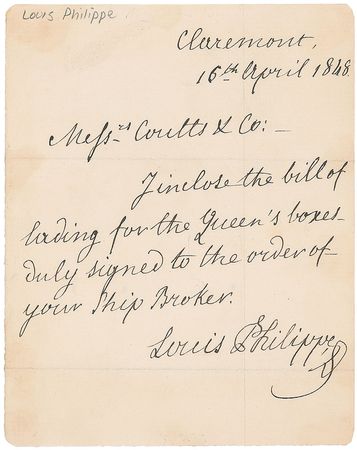 Louis Philippe
Claremont,
16th April 1848.
Messrs Coutts & Co: –
I inclose the bill of
lading for the Queen's boxes
duly signed to the order of
your Ship Broker.
Louis Philippe